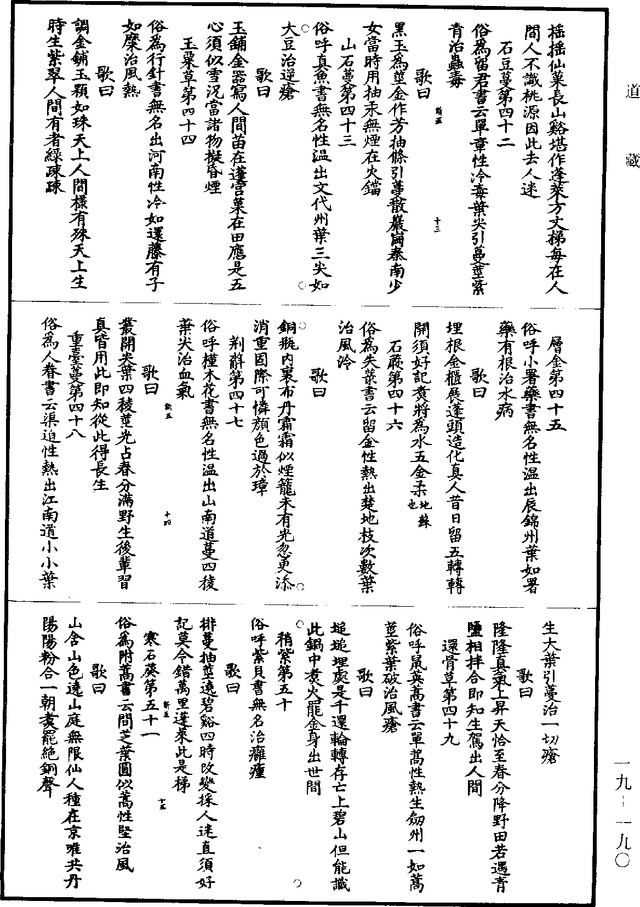 道藏
搖搖仙菓長山谿堪作蓬萊方丈梯每在人
間人不識桃源因此去人迷
石豆蔓第四十二
俗為留君書云單章性冷毒葉尖引蔓莖紫
青治蟲毒
歌曰
黑玉為莖金作芳抽條引蔓散巖崗秦南少
女當時用抽汞無煙在火鐺
山石蔓第四十三
俗呼真魚書無名性温出文代州葉三尖如
大豆治逆瘡
歌曰
玉鋪金器寫人間苗在蓬宫菓在田應是五
心須似雪況當諸物擬昏煙
玉粟草第四十四
俗為行針書無名出河南性冷如還藤有子
如糜治風熱
歌曰
調金鋪玉顆如珠天上人間樣有殊天上生
時生紫翠人間有者緑疎疎
層金第四十五
俗呼小署藥書無名性温出辰錦州葉如署
藥有根治水病
歌曰
埋根金櫃展蓬頭造化真人昔日留五轉轉
開須好記煑將為水五金柔
石蕨第四十六
俗為失蕞書云留金性熱出楚地枝次數葉
治風冷
歌曰
銅瓶内裏布丹霜霜似煙籠未有光忽更添
消重固際可憐顏色過於璋
荆辭第四十七
俗呼槿木花書無名性温出山南道蔓四稜
葉尖治血氣
歌曰
叢開尖葉四稜莖光占春分滿野生後輩習
真皆用此即知從此得長生
重臺蔓第四十八
俗為人春書云渠迫性熱出江南道小小葉
生大葉引蔓治一切瘡
歌曰
隆隆真氣上昇天恰至春分降野田若遇青
鹽相拌合即知生駕出人間
還骨草第四十九
俗呼鼠英蒿書云單蒿性熱生劒州一如蒿
莖紫葉破治風瘡
歌曰
搥搥埋處是千還輪轉存亡上碧山但能識
此鍋中煑火罷金身出世間
稍紫第五十
俗呼紫貝書無名治癰疽
歌曰
排蔓抽莖遶碧谿四時改變採人迷直須好
記莫令錯萬里蓬萊此是梯
寒石葵第五十一
俗為附蒿書云問芝葉圓似蒿性堅治風
歌曰
山含山色遶山庭無限仙人種在京唯共丹
陽陽粉合一朝煑罷絶銅聲
一九－一九〇